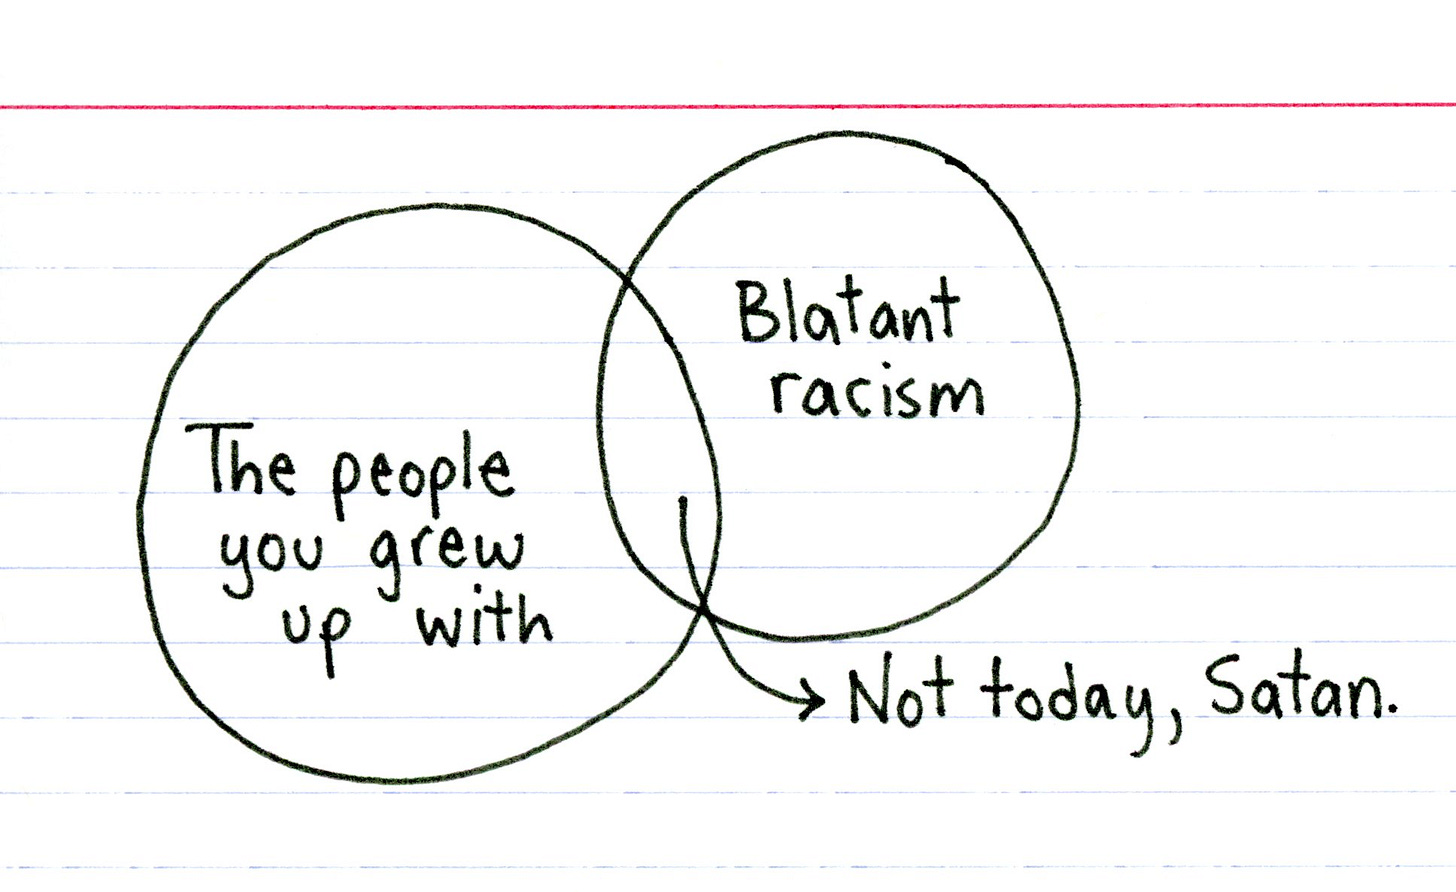 Blatant
racism
The people
you grew
up with
Not today, Satan.